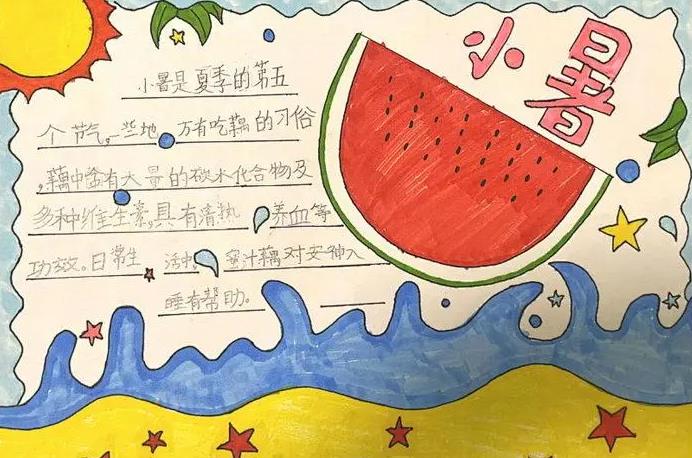 小暑
小暑是夏季的第五
个节气。一些地方有吃藕的习俗
,藕中含有大量的碳水化合物及
多种维生素,具有清热养血等
功效。日常生活中,蜜汁藕对安神入
睡有帮助。